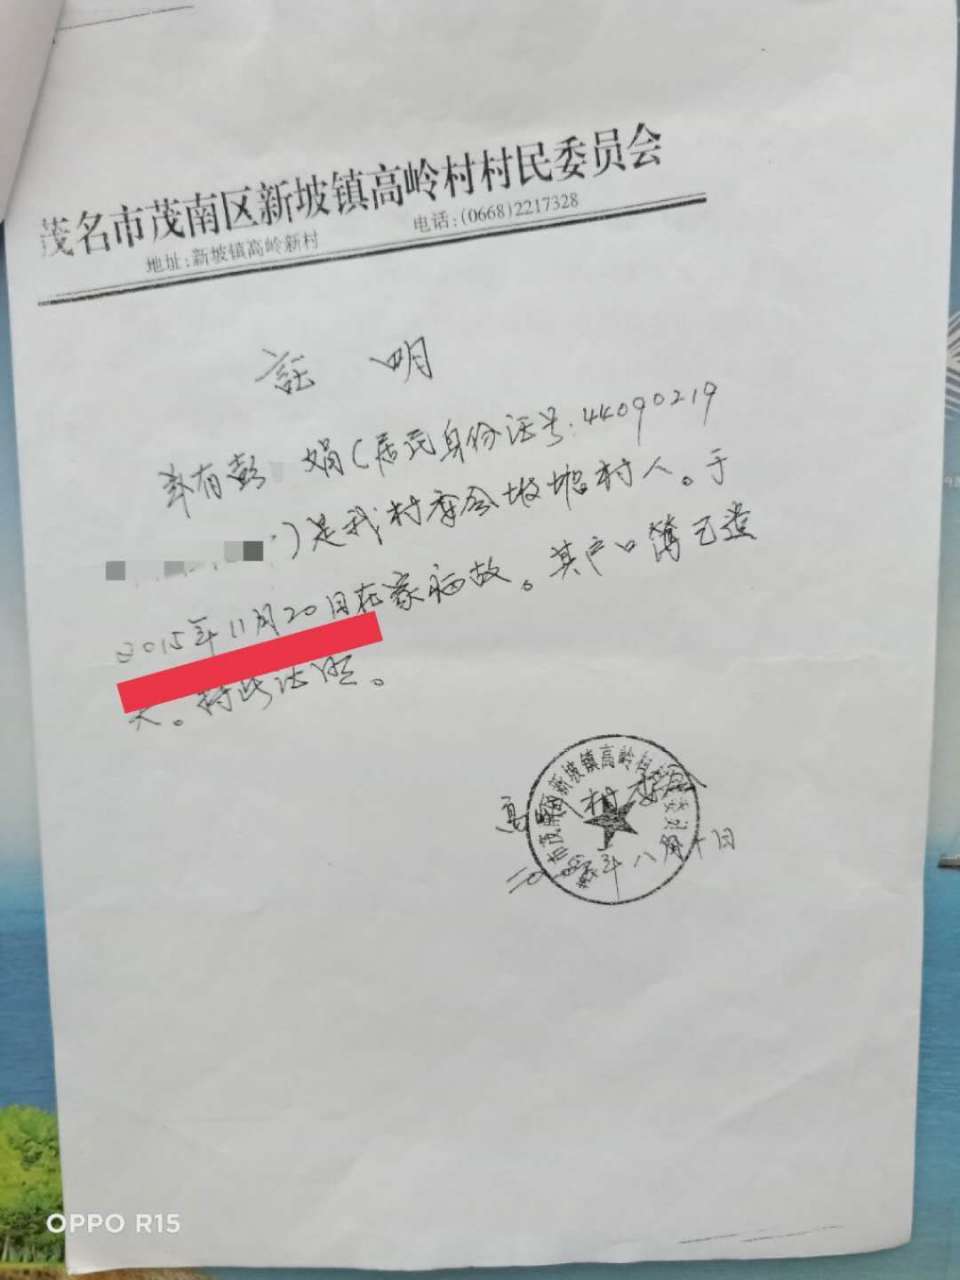 茂名市茂南区新坡镇高岭村村民委员会
地址:新坡镇高岭新村 电话:(0668)2217328
証 明
兹有彭 娟(居民身份证号:44090219
)是我村委会坡塘村人。于
2015年11月20日在家病故。其户口簿已遗
失。特此证明。
高 村委会
新坡镇高岭村
年八月十日
OPPO R15